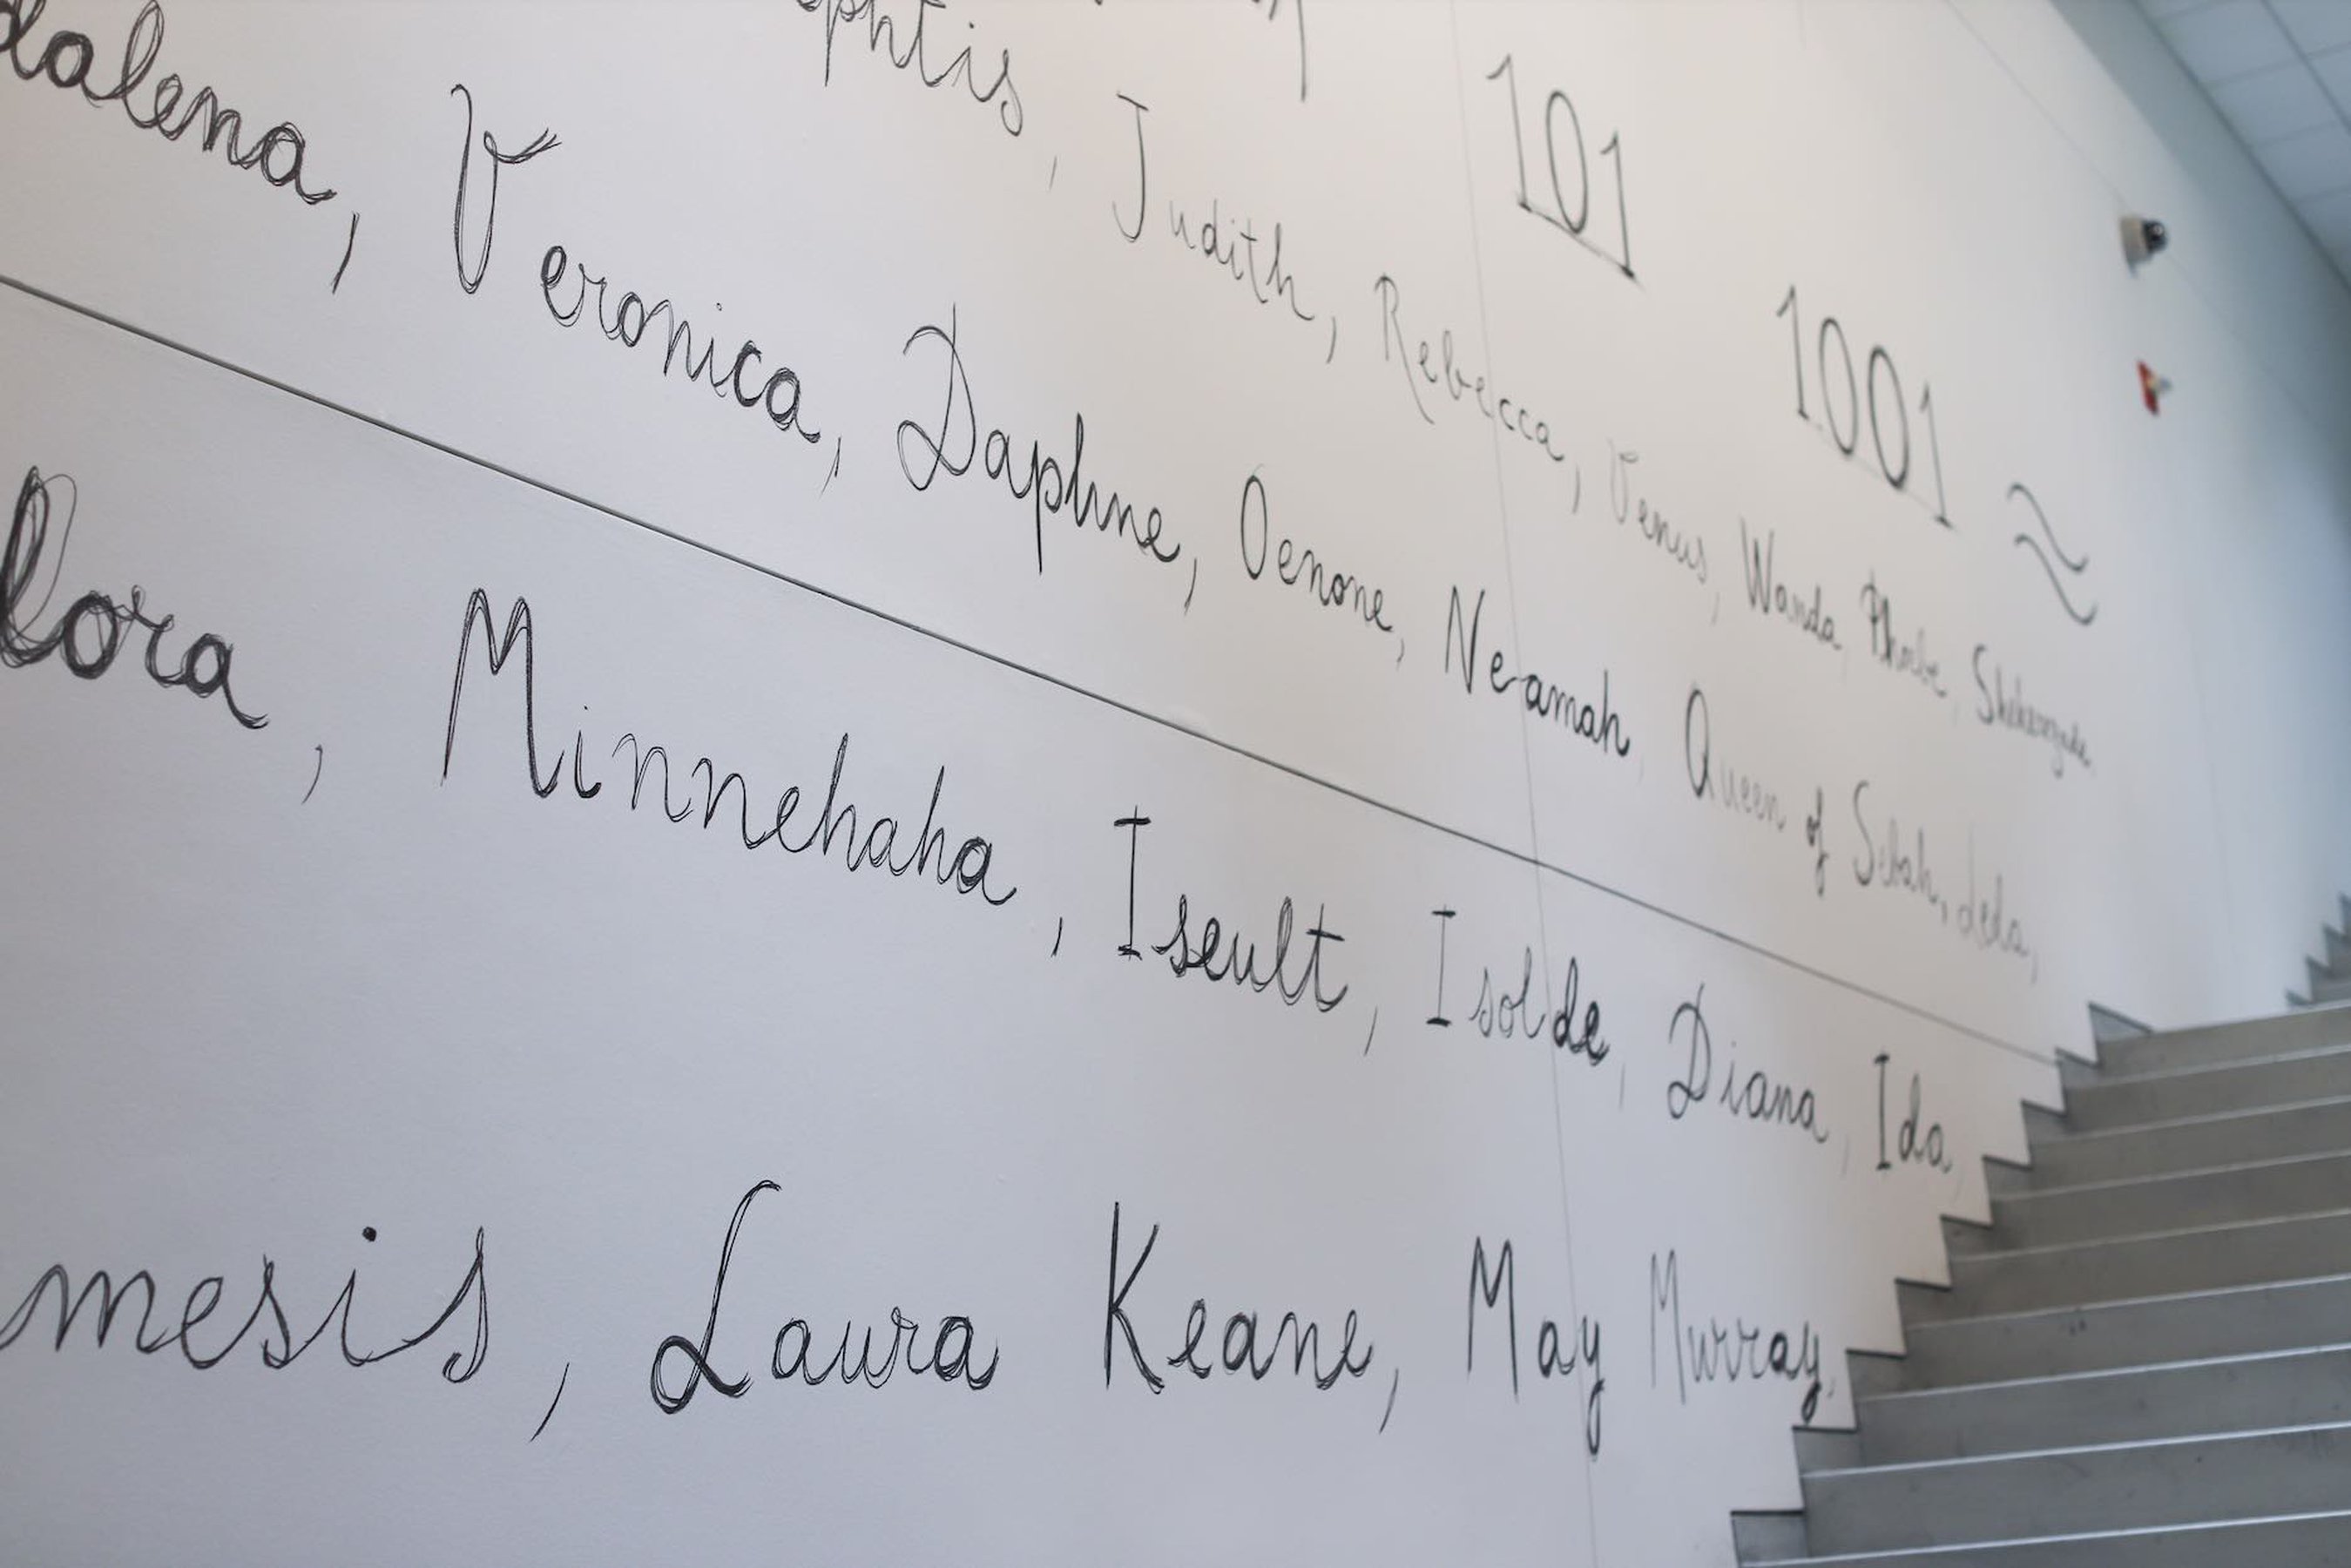 101
1001 ≈
Judith, Rebecca, Venus, Wanda, Phoebe,
Veronica, Daphne, Oenone, Neamah, Queen of Sebah, deda,
Minnehaha, Iseult, Isolde, Diana, Ida,
mesis, Laura Keane, May Murray,